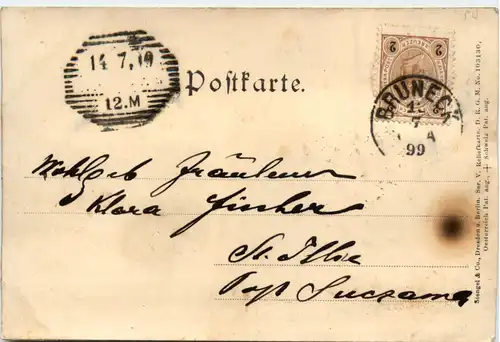 14.7.19
12.M
Postkarte.
2 2
BRUNECK
7
99
Wohlgeb Fräulein
Klara Fischer
St. Illia
Post Suczawa
Stengel & Co., Dresden u. Berlin. Ser. V. Reliefkarte. D. R. G. M. No. 103130,
Oesterreich Pat. ang., + Schweiz Pat. ang.